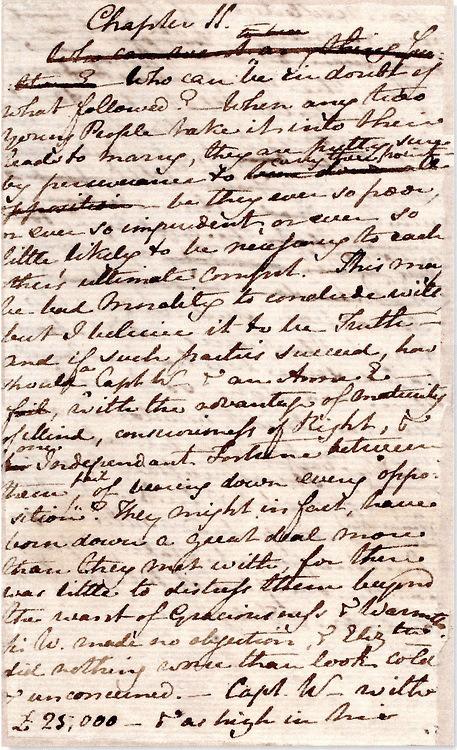 Chapter 11.
Who can be in doubt of
what followed? When any two
Young People take it into their
heads to marry, they are pretty sure
by perseverance to carry their point
be they ever so poor,
or ever so imprudent, or ever so
little likely to be necessary to each
other's ultimate comfort. This may
be bad Morality to conclude with,
but I believe it to be Truth—
and if such parties succeed, how
should a Capt W— & an Anne E—
fail, with the advantage of maturity
of Mind, consciousness of Right, &
one Independant Fortune between
them, fail of bearing down every oppo-
sition? They might in fact, have
born down a great deal more
than they met with, for there
was little to distress them beyond
the want of Graciousness & Warmth.
Sir W. made no objection, & Eliz:th
did nothing worse than look cold
& unconcerned.— Capt. W— with
£25,000— & as high in his